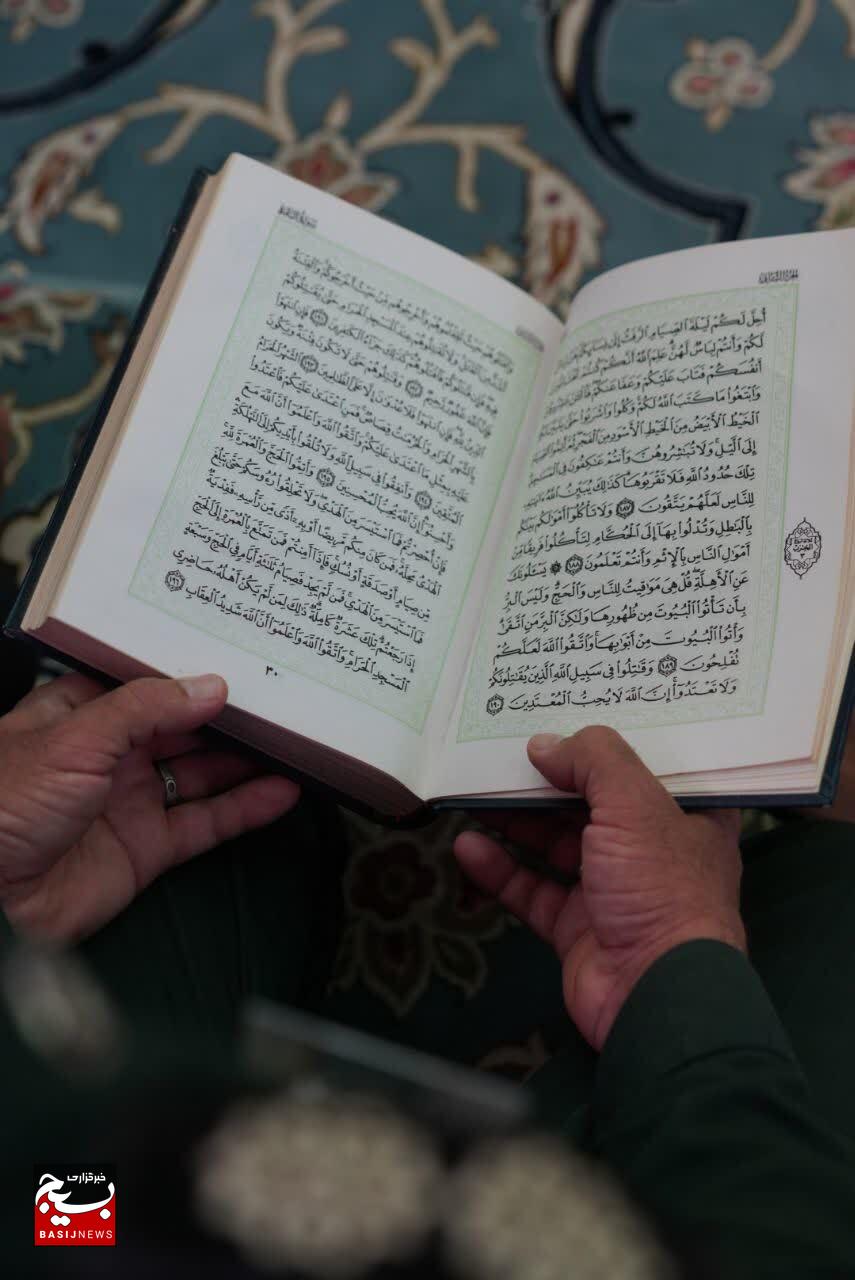 الجزء الثاني
أُحِلَّ لَكُمْ لَيْلَةَ ٱلصِّيَامِ ٱلرَّفَثُ إِلَىٰ نِسَآئِكُمْ
لَكُمْ وَأَنتُمْ لِبَاسٌ لَّهُنَّ عَلِمَ ٱللَّهُ أَنَّكُمْ كُنتُمْ
أَنفُسَكُمْ فَتَابَ عَلَيْكُمْ وَعَفَا عَنكُمْ
وَٱبْتَغُوا۟ مَا كَتَبَ ٱللَّهُ لَكُمْ وَكُلُوا۟ وَٱشْرَبُوا۟ حَتَّىٰ يَتَبَيَّنَ
ٱلْخَيْطُ ٱلْأَبْيَضُ مِنَ ٱلْخَيْطِ ٱلْأَسْوَدِ مِنَ ٱلْفَجْرِ ثُمَّ أَتِمُّوا۟
إِلَى ٱلَّيْلِ وَلَا تُبَٰشِرُوهُنَّ وَأَنتُمْ عَٰكِفُونَ فِى ٱلْمَسَٰجِدِ
تِلْكَ حُدُودُ ٱللَّهِ فَلَا تَقْرَبُوهَا كَذَٰلِكَ يُبَيِّنُ ٱللَّهُ ءَايَٰتِهِۦ
لِلنَّاسِ لَعَلَّهُمْ يَتَّقُونَ ﴿١٨٧﴾ وَلَا تَأْكُلُوٓا۟ أَمْوَٰلَكُم بَيْنَكُم
بِٱلْبَٰطِلِ وَتُدْلُوا۟ بِهَآ إِلَى ٱلْحُكَّامِ لِتَأْكُلُوا۟ فَرِيقًا مِّنْ
أَمْوَٰلِ ٱلنَّاسِ بِٱلْإِثْمِ وَأَنتُمْ تَعْلَمُونَ ﴿١٨٨﴾ يَسْـَٔلُونَكَ
عَنِ ٱلْأَهِلَّةِ قُلْ هِىَ مَوَٰقِيتُ لِلنَّاسِ وَٱلْحَجِّ وَلَيْسَ ٱلْبِرُّ
بِأَن تَأْتُوا۟ ٱلْبُيُوتَ مِن ظُهُورِهَا وَلَٰكِنَّ ٱلْبِرَّ مَنِ ٱتَّقَىٰ
وَأْتُوا۟ ٱلْبُيُوتَ مِنْ أَبْوَٰبِهَا وَٱتَّقُوا۟ ٱللَّهَ لَعَلَّكُمْ
تُفْلِحُونَ ﴿١٨٩﴾ وَقَٰتِلُوا۟ فِى سَبِيلِ ٱللَّهِ ٱلَّذِينَ يُقَٰتِلُونَكُمْ
وَلَا تَعْتَدُوٓا۟ إِنَّ ٱللَّهَ لَا يُحِبُّ ٱلْمُعْتَدِينَ ﴿١٩٠﴾
سورة البقرة
وَٱقْتُلُوهُمْ حَيْثُ ثَقِفْتُمُوهُمْ وَأَخْرِجُوهُم مِّنْ حَيْثُ أَخْرَجُوكُمْ وَٱلْفِتْنَةُ
أَشَدُّ مِنَ ٱلْقَتْلِ وَلَا تُقَٰتِلُوهُمْ عِندَ ٱلْمَسْجِدِ ٱلْحَرَامِ حَتَّىٰ يُقَٰتِلُوكُمْ
فِيهِ فَإِن قَٰتَلُوكُمْ فَٱقْتُلُوهُمْ كَذَٰلِكَ جَزَآءُ ٱلْكَٰفِرِينَ ﴿١٩١﴾ فَإِنِ ٱنتَهَوْا۟
فَإِنَّ ٱللَّهَ غَفُورٌ رَّحِيمٌ ﴿١٩٢﴾ وَقَٰتِلُوهُمْ حَتَّىٰ لَا تَكُونَ فِتْنَةٌ وَيَكُونَ
ٱلدِّينُ لِلَّهِ فَإِنِ ٱنتَهَوْا۟ فَلَا عُدْوَٰنَ إِلَّا عَلَى ٱلظَّٰلِمِينَ ﴿١٩٣﴾ ٱلشَّهْرُ ٱلْحَرَامُ
بِٱلشَّهْرِ ٱلْحَرَامِ وَٱلْحُرُمَٰتُ قِصَاصٌ فَمَنِ ٱعْتَدَىٰ عَلَيْكُمْ فَٱعْتَدُوا۟
عَلَيْهِ بِمِثْلِ مَا ٱعْتَدَىٰ عَلَيْكُمْ وَٱتَّقُوا۟ ٱللَّهَ وَٱعْلَمُوٓا۟ أَنَّ ٱللَّهَ مَعَ
ٱلْمُتَّقِينَ ﴿١٩٤﴾ وَأَنفِقُوا۟ فِى سَبِيلِ ٱللَّهِ وَلَا تُلْقُوا۟ بِأَيْدِيكُمْ إِلَى ٱلتَّهْلُكَةِ
وَأَحْسِنُوٓا۟ إِنَّ ٱللَّهَ يُحِبُّ ٱلْمُحْسِنِينَ ﴿١٩٥﴾ وَأَتِمُّوا۟ ٱلْحَجَّ وَٱلْعُمْرَةَ لِلَّهِ
فَإِنْ أُحْصِرْتُمْ فَمَا ٱسْتَيْسَرَ مِنَ ٱلْهَدْىِ وَلَا تَحْلِقُوا۟ رُءُوسَكُمْ حَتَّىٰ يَبْلُغَ
ٱلْهَدْىُ مَحِلَّهُۥ فَمَن كَانَ مِنكُم مَّرِيضًا أَوْ بِهِۦٓ أَذًى مِّن رَّأْسِهِۦ فَفِدْيَةٌ
مِّن صِيَامٍ أَوْ صَدَقَةٍ أَوْ نُسُكٍ فَإِذَآ أَمِنتُمْ فَمَن تَمَتَّعَ بِٱلْعُمْرَةِ إِلَى ٱلْحَجِّ
فَمَا ٱسْتَيْسَرَ مِنَ ٱلْهَدْىِ فَمَن لَّمْ يَجِدْ فَصِيَامُ ثَلَٰثَةِ أَيَّامٍ فِى ٱلْحَجِّ وَسَبْعَةٍ
إِذَا رَجَعْتُمْ تِلْكَ عَشَرَةٌ كَامِلَةٌ ذَٰلِكَ لِمَن لَّمْ يَكُنْ أَهْلُهُۥ حَاضِرِى
ٱلْمَسْجِدِ ٱلْحَرَامِ وَٱتَّقُوا۟ ٱللَّهَ وَٱعْلَمُوٓا۟ أَنَّ ٱللَّهَ شَدِيدُ ٱلْعِقَابِ ﴿١٩٦﴾
٣٠
خبرگزاری
بسیج
BASIJNEWS